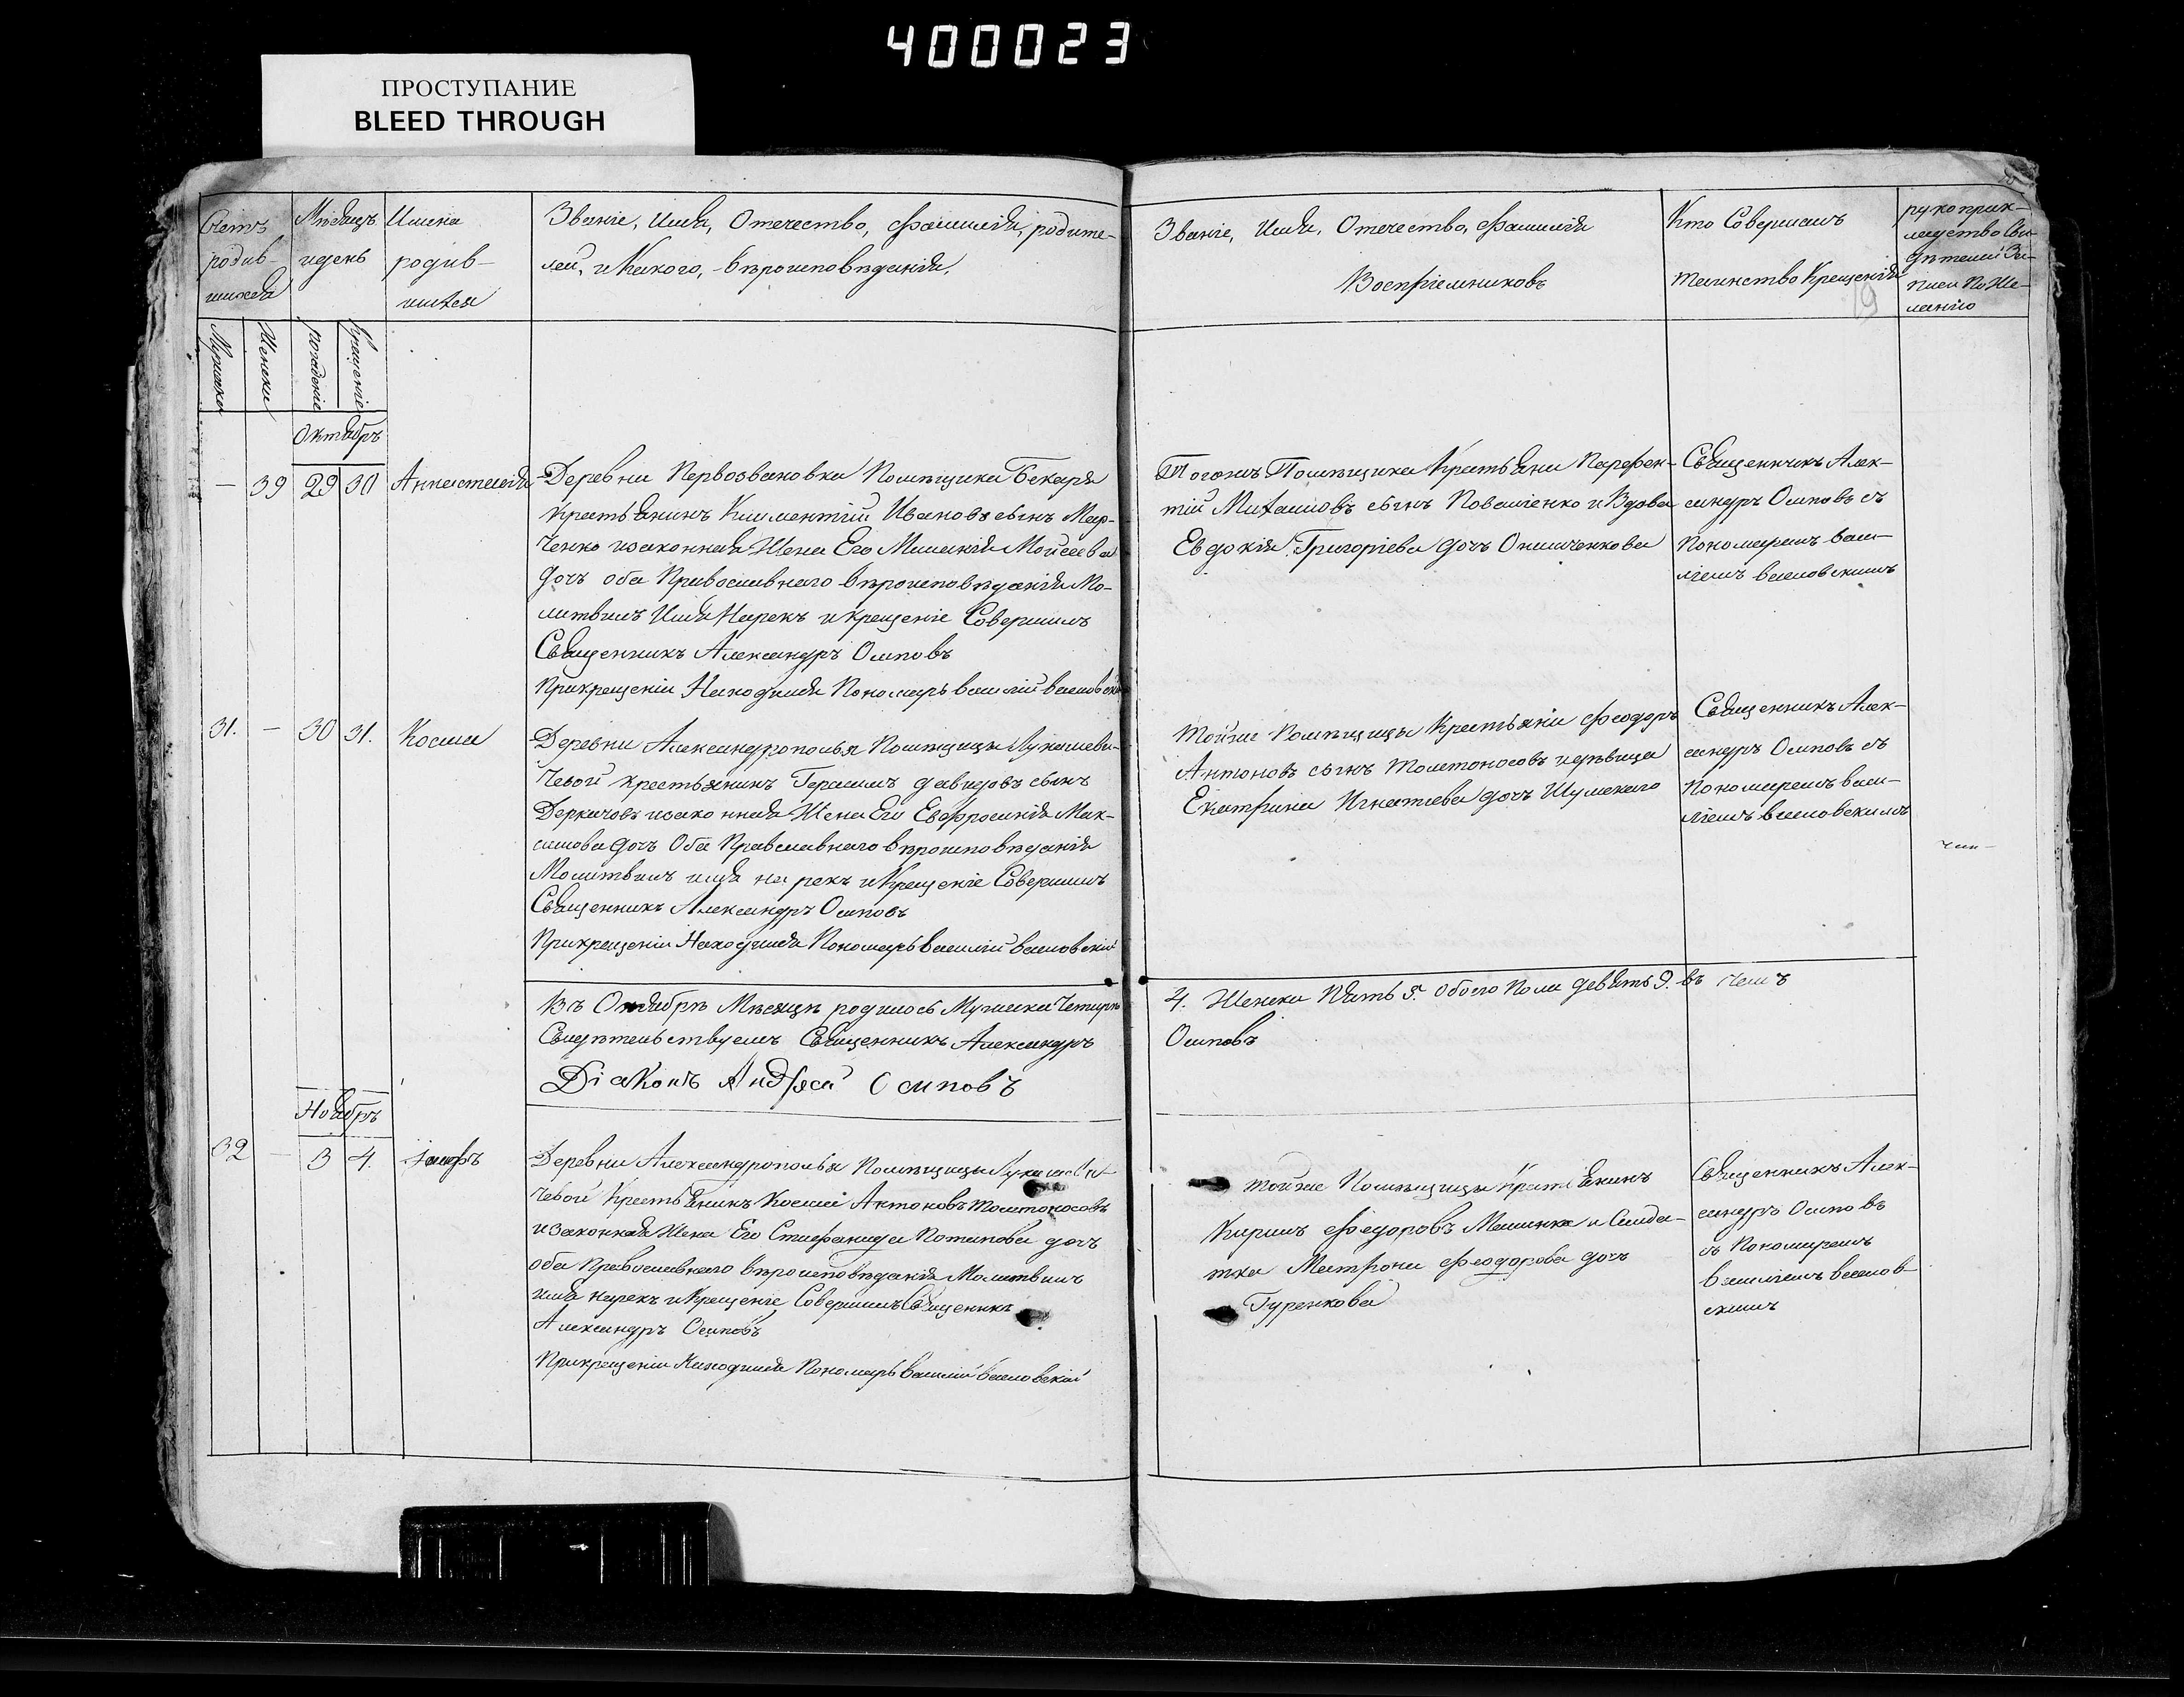 400023
ПРОСТУПАНИЕ
BLEED THROUGH
Счетъ
родив-
шихся
Мѣсяцъ
и день
Имена
родив-
шихся
Званіе, Имя, Отечество, Фамилія, родите-
лей, и Какого, вѣроисповѣданія.
Званіе, Имя, Отечество, Фамилія
Воспріемниковъ
Кто Совершалъ
таинство Крещенія
рукоприк-
ладство Сви-
дѣтелей За-
писи По Же-
ланію
19
Мужска
Женска
рожденіе
Крещеніе
Октябрь
— 39 29 30 Анастасія
Деревни Первозвановки Помѣщика Бекаря
Крестьянинъ Климентій Ивановъ сынъ Мар-
ченко и законная Жена Его Меланія Моисеева
дочь оба Православнаго вѣроисповѣданія Мо-
литвилъ Имя Нарекъ и крещеніе Совершилъ
Священникъ Александръ Осиповъ
При крещеніи Находился Пономарь Василій
Тогожъ Помѣщика Крестьяни Парфен-
тій Михаиловъ сынъ Коваленко и Вдова
Евдокія Григоріева дочь
Священникъ Алек-
сандръ Осиповъ съ
Пономаремъ Васи-
ліемъ
31. — 30 31. Косма
Деревни Александрополья Помѣщицы Лукашеви-
чевой крестьянинъ Герасимъ Давидовъ сынъ
Деркачовъ и законная Жена Его Евфросинія Мак-
симова дочь Оба Православнаго вѣроисповѣданія
Молитвилъ имя нарекъ и Крещеніе Совершилъ
Священникъ Александръ Осиповъ
При крещеніи Находился Пономарь Василій
Тойже Помѣщицы Крестьяни Феодоръ
Антоновъ сынъ Толстоносовъ и дѣвица
Екатрина Игнатиева дочь Шумскаго
Священникъ Алек-
сандръ Осиповъ съ
Пономаремъ Васи-
ліемъ
Въ Октябрѣ Мѣсяцѣ родилось Мужска Четыри
4. Женска Пять 5. Обоего Пола девять 9. въ чемъ
Свидѣтельствуемъ Священникъ Александръ
Осиповъ
Діаконъ Андрей Осиповъ
Ноябрь
32 — 3 4. Іосифъ
Деревни Александрополья Помѣщицы Лукашеви-
чевой Крестьянинъ Косма Антоновъ Толстоносовъ
и законная Жена Его Стефанида Потапова дочь
оба Православнаго вѣроисповѣданія Молитвилъ
имя нарекъ и Крещеніе Совершилъ Священникъ
Александръ Осиповъ
При крещеніи Находился Пономарь Василій
тойже Помѣщицы Крестьянинъ
Кирилъ Федоровъ и Солда-
тка Матрона Феодорова дочь
Гуренкова
Священникъ Алек-
сандръ Осиповъ
съ Пономаремъ
Василіемъ